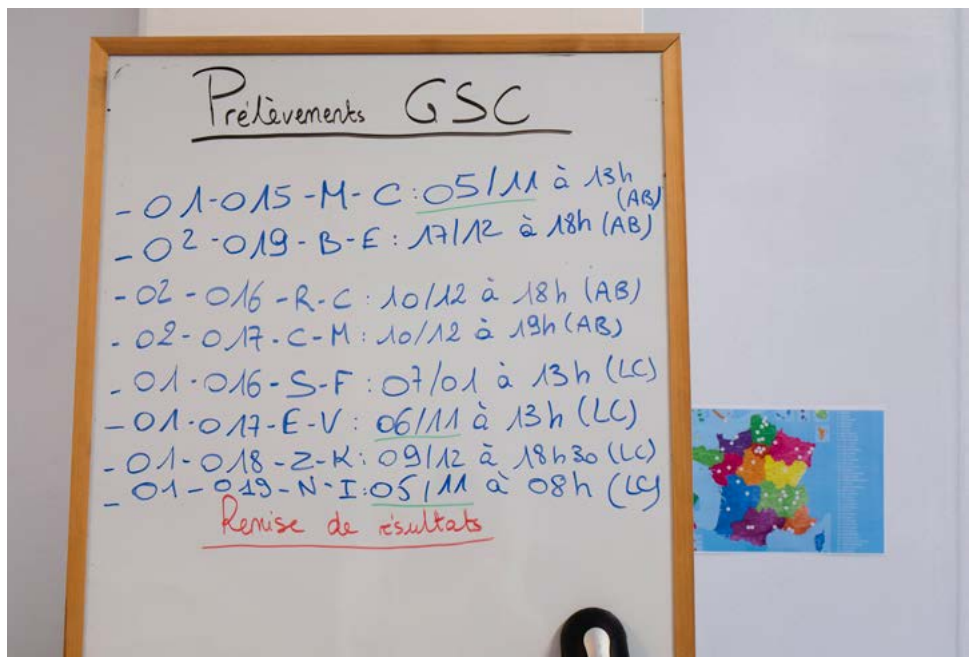 Prélèvements GSC
- 01-015-M-C: 05/11 à 13h (AB)
- 02-019-B-E: 17/12 à 18h (AB)
- 02-016-R-C: 10/12 à 18h (AB)
- 02-017-C-M: 10/12 à 19h (AB)
- 01-016-S-F: 07/01 à 13h (LC)
- 01-017-E-V: 06/11 à 13h (LC)
- 01-018-Z-K: 09/12 à 18h30 (LC)
- 01-019-N-I: 05/11 à 08h (LC)
Remise de résultats